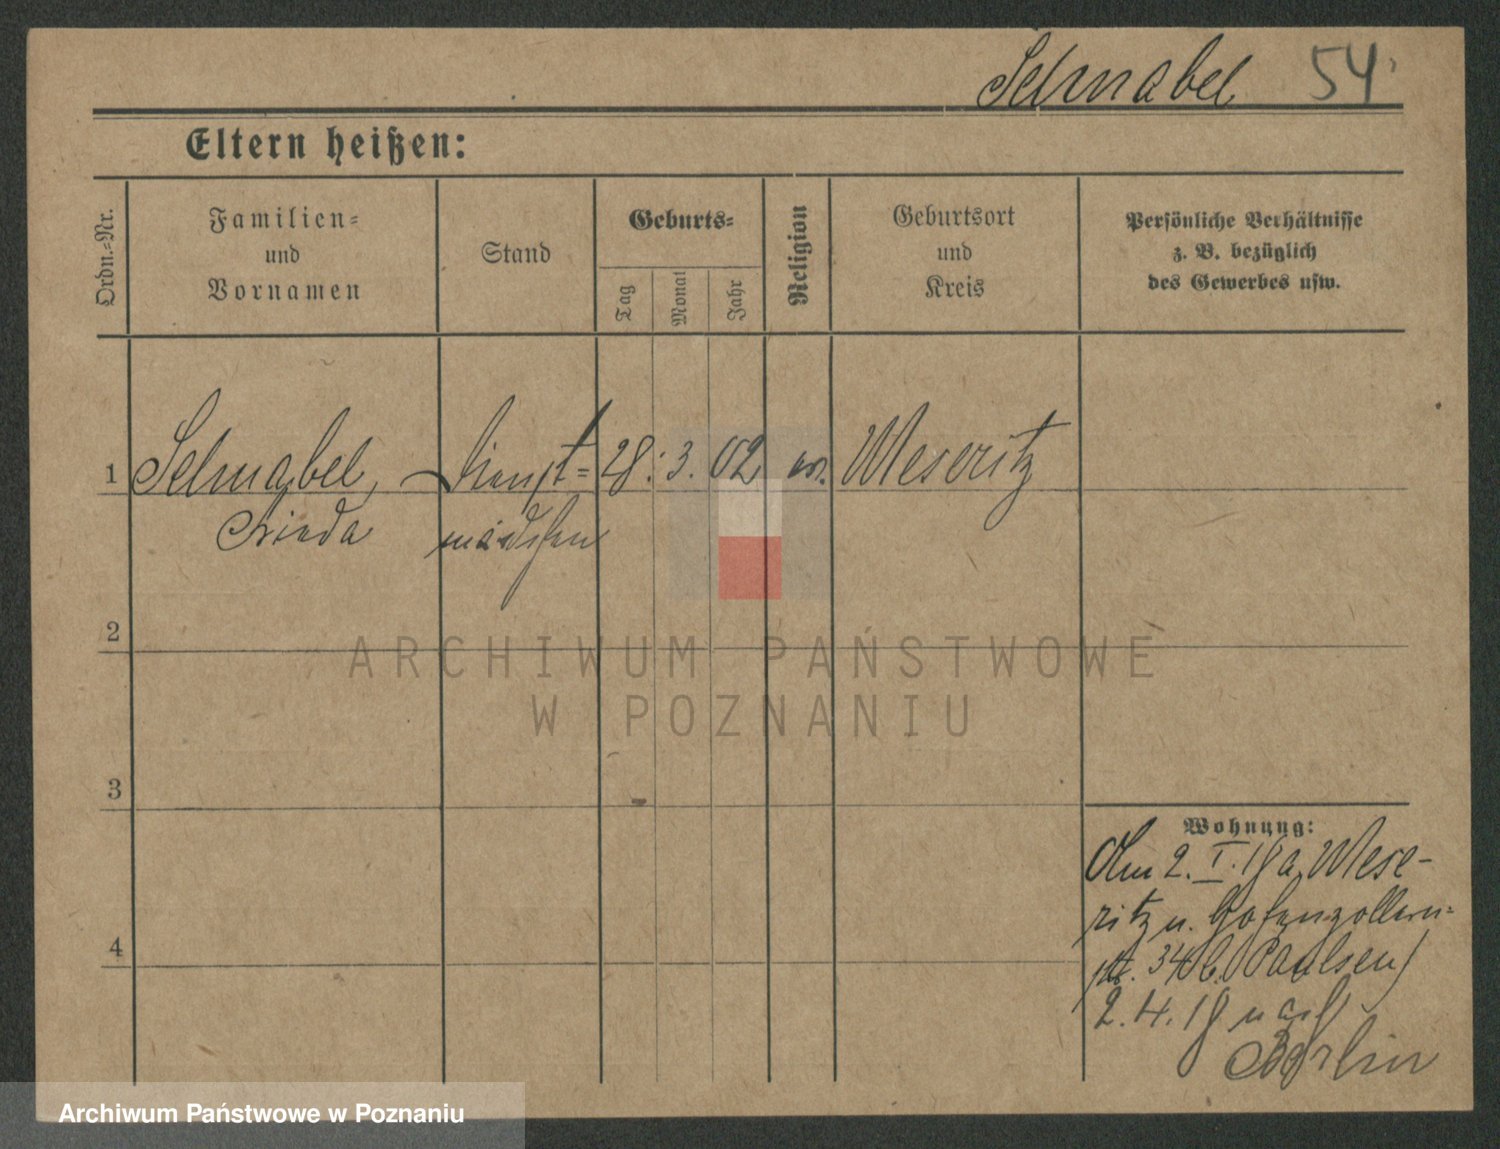 Schnabel 54
Eltern heißen:
Ordn.-Nr.
Familien-
und
Vornamen
Stand
Geburts-
Tag
Monat
Jahr
Religion
Geburtsort
und
Kreis
Persönliche Verhältnisse
z. B. bezüglich
des Gewerbes usw.
1 Schnabel, Dienst= 28. 3. 02 ev. Meseritz
Frieda mädchen
2
ARCHIWUM PAŃSTWOWE
W POZNANIU
3
4
Wohnung:
Am 2. I. 19 a. Mese-
ritz n. Hohenzollern=
str. 34 b. Paulsen/
2.4.19 nach
Berlin
Archiwum Państwowe w Poznaniu